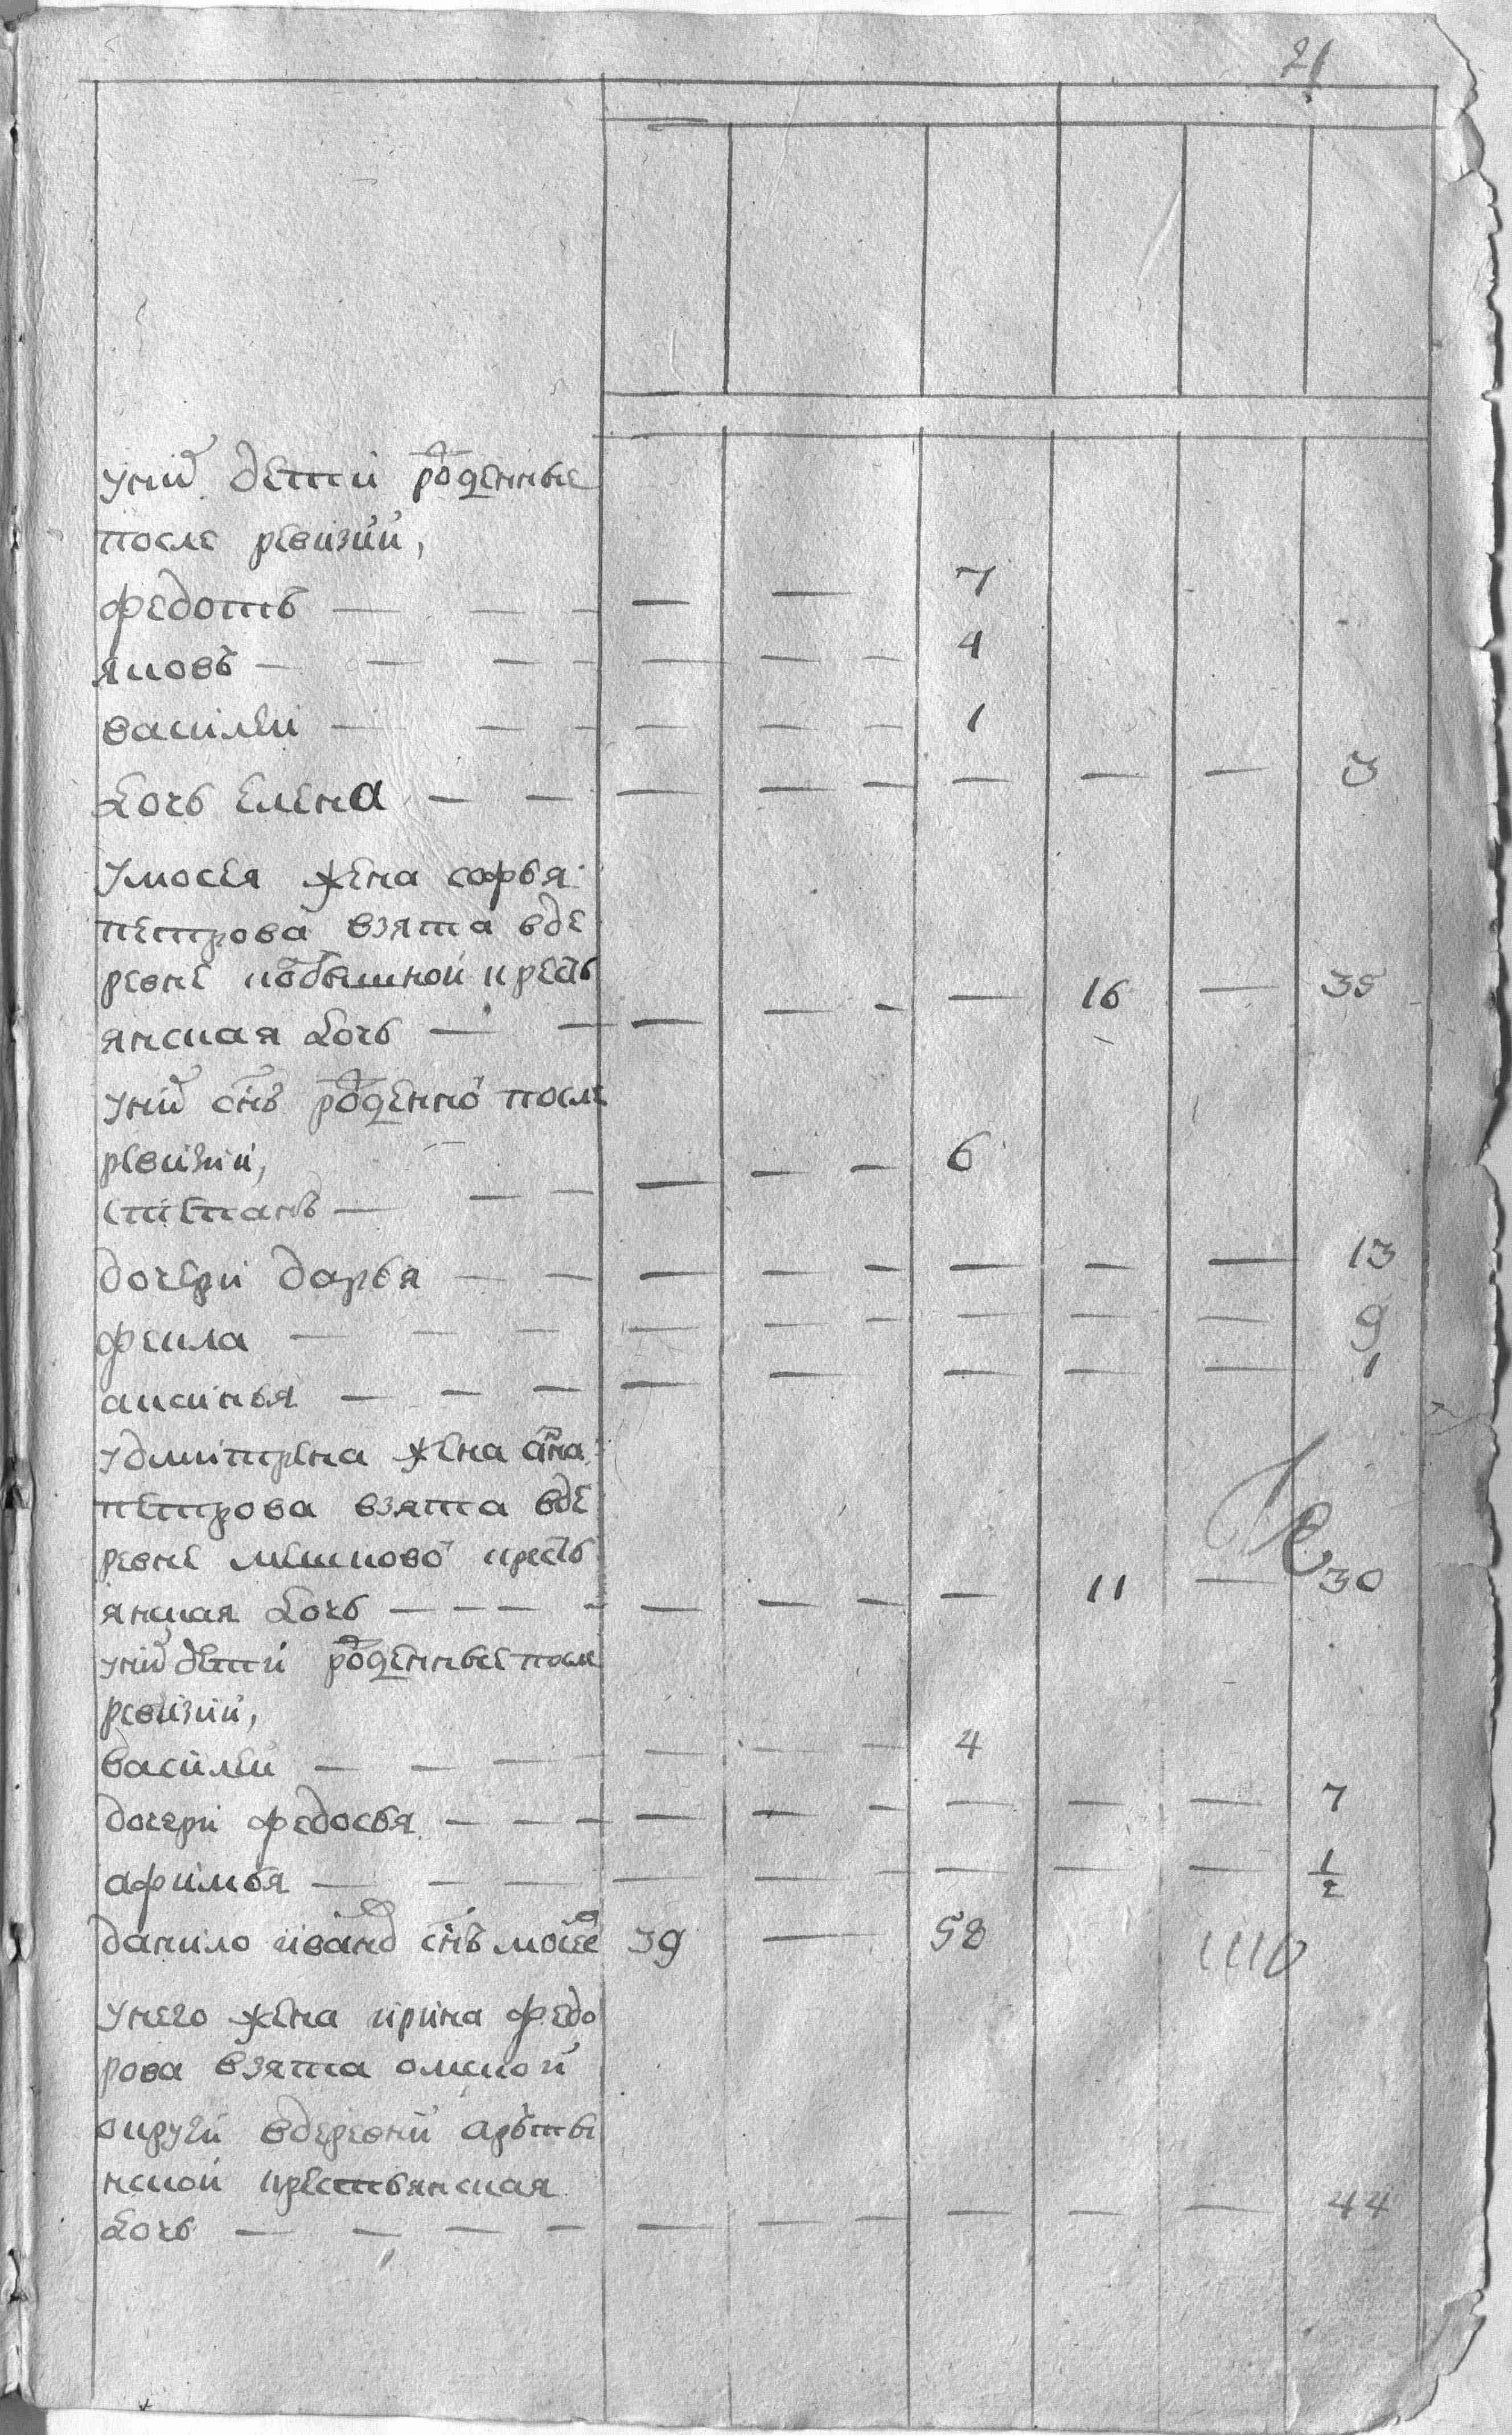 21
у них дети рожденные
после ревизии,
федотъ — — — — — 7
яковъ — — — — — — 4
василеи — — — — — — 1
дочь елена — — — — — — — — 3
у мосея жена софья
петрова взята вде
ревне кобышной кресть
янская дочь — — — — — — 16 — 35
у них снъ рожденно после
ревизии,
степанъ — — — — — — 6
дочери дарья — — — — — — — — 13
фекла — — — — — — — — — 9
аксинья — — — — — — — — 1
у дмитрея жена анна
петрова взята вде
ревне мешково кресть
янская дочь — — — — — — — — 11 — 30
у них дети рожденные после
ревизии,
василеи — — — — — — 4
дочери федосья — — — — — — — — — 7
афимья — — — — — — — — 1/2
данило иванов снъ мосеев 39 — 58
у него жена ирина федо
рова взята омской
округи вдеревни арты
нской крестьянская
дочь — — — — — — — — — — 44